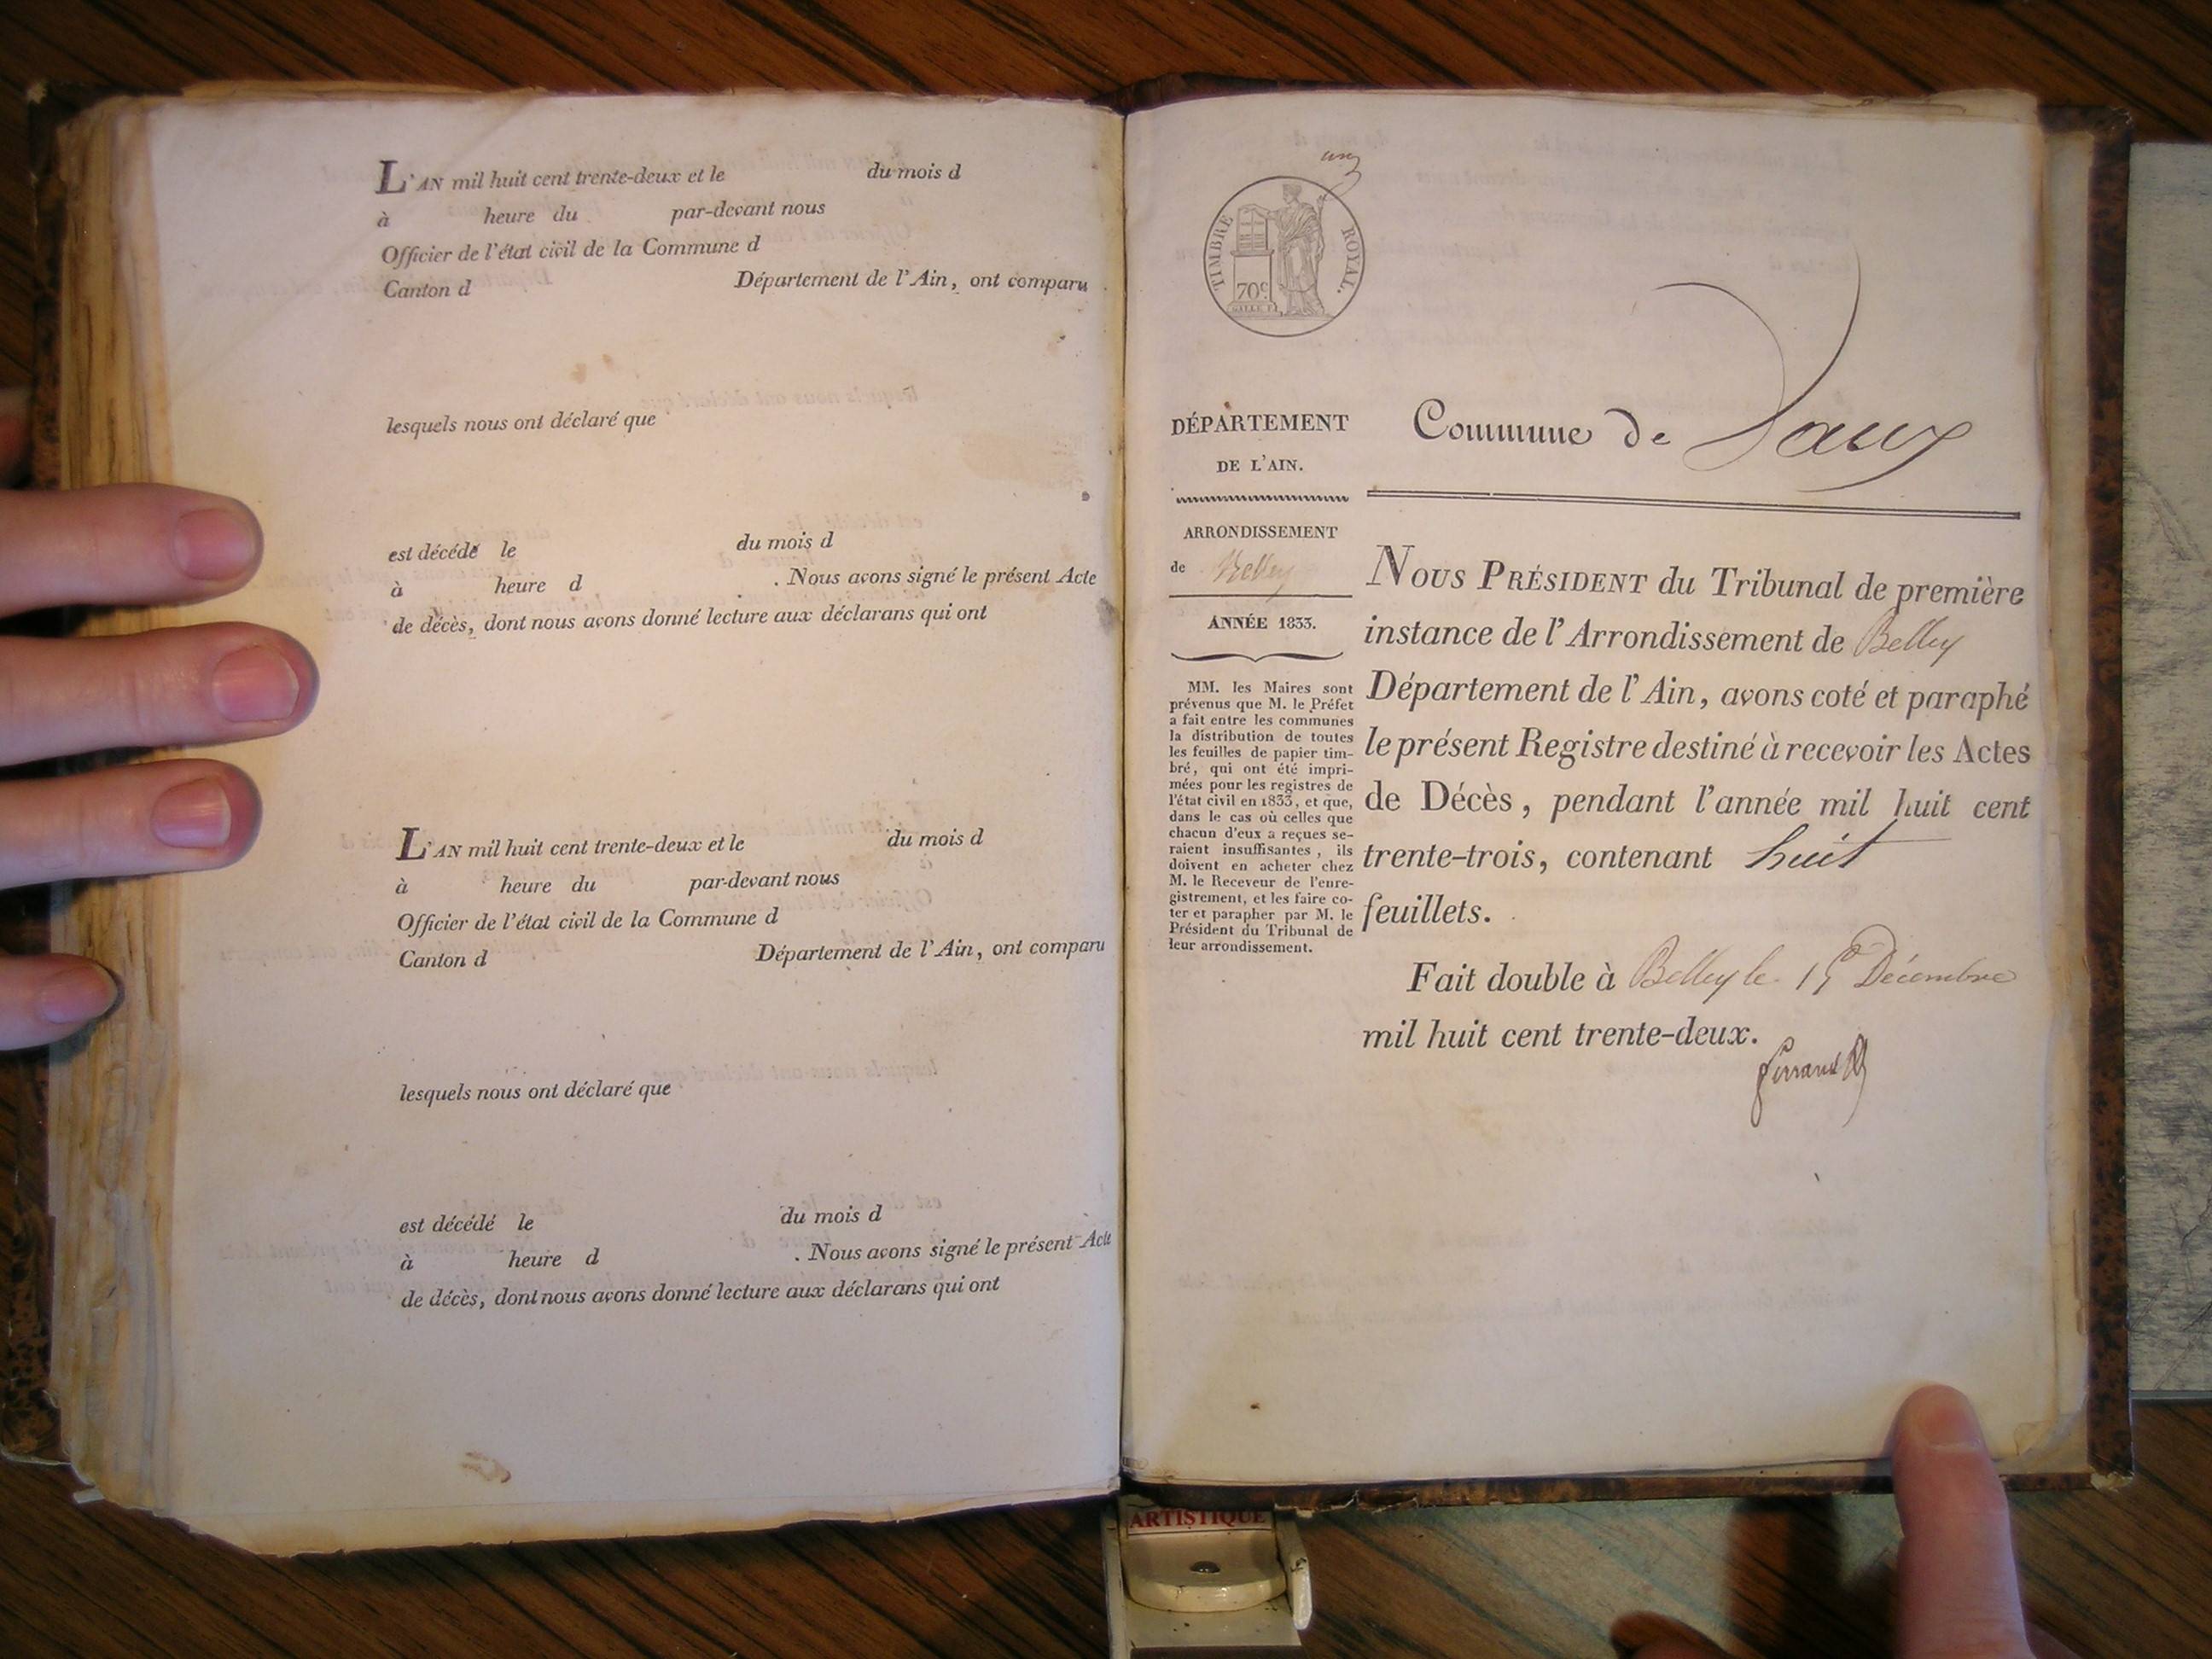 L'AN mil huit cent trente-deux et le du mois d
à heure du par-devant nous
Officier de l'état civil de la Commune d
Canton d Département de l'Ain, ont comparu
lesquels nous ont déclaré que
est décédé le du mois d
à heure d . Nous avons signé le présent Acte
de décès, dont nous avons donné lecture aux déclarans qui ont
L'AN mil huit cent trente-deux et le du mois d
à heure du par-devant nous
Officier de l'état civil de la Commune d
Canton d Département de l'Ain, ont comparu
lesquels nous ont déclaré que
est décédé le du mois d
à heure d . Nous avons signé le présent Acte
de décès, dont nous avons donné lecture aux déclarans qui ont
un
TIMBRE ROYAL.
70c
DÉPARTEMENT
DE L'AIN.
ARRONDISSEMENT
de Belley
ANNÉE 1833.
MM. les Maires sont
prévenus que M. le Préfet
a fait entre les communes
la distribution de toutes
les feuilles de papier tim-
bré, qui ont été impri-
mées pour les registres de
l'état civil en 1833, et que,
dans le cas où celles que
chacun d'eux a reçues se-
raient insuffisantes, ils
doivent en acheter chez
M. le Receveur de l'enre-
gistrement, et les faire co-
ter et parapher par M. le
Président du Tribunal de
leur arrondissement.
Commune de Vaux
NOUS PRÉSIDENT du Tribunal de première
instance de l'Arrondissement de Belley
Département de l'Ain, avons coté et paraphé
le présent Registre destiné à recevoir les Actes
de Décès, pendant l'année mil huit cent
trente-trois, contenant huit
feuillets.
Fait double à Belley le Décembre
mil huit cent trente-deux.
ARTISTIQUE